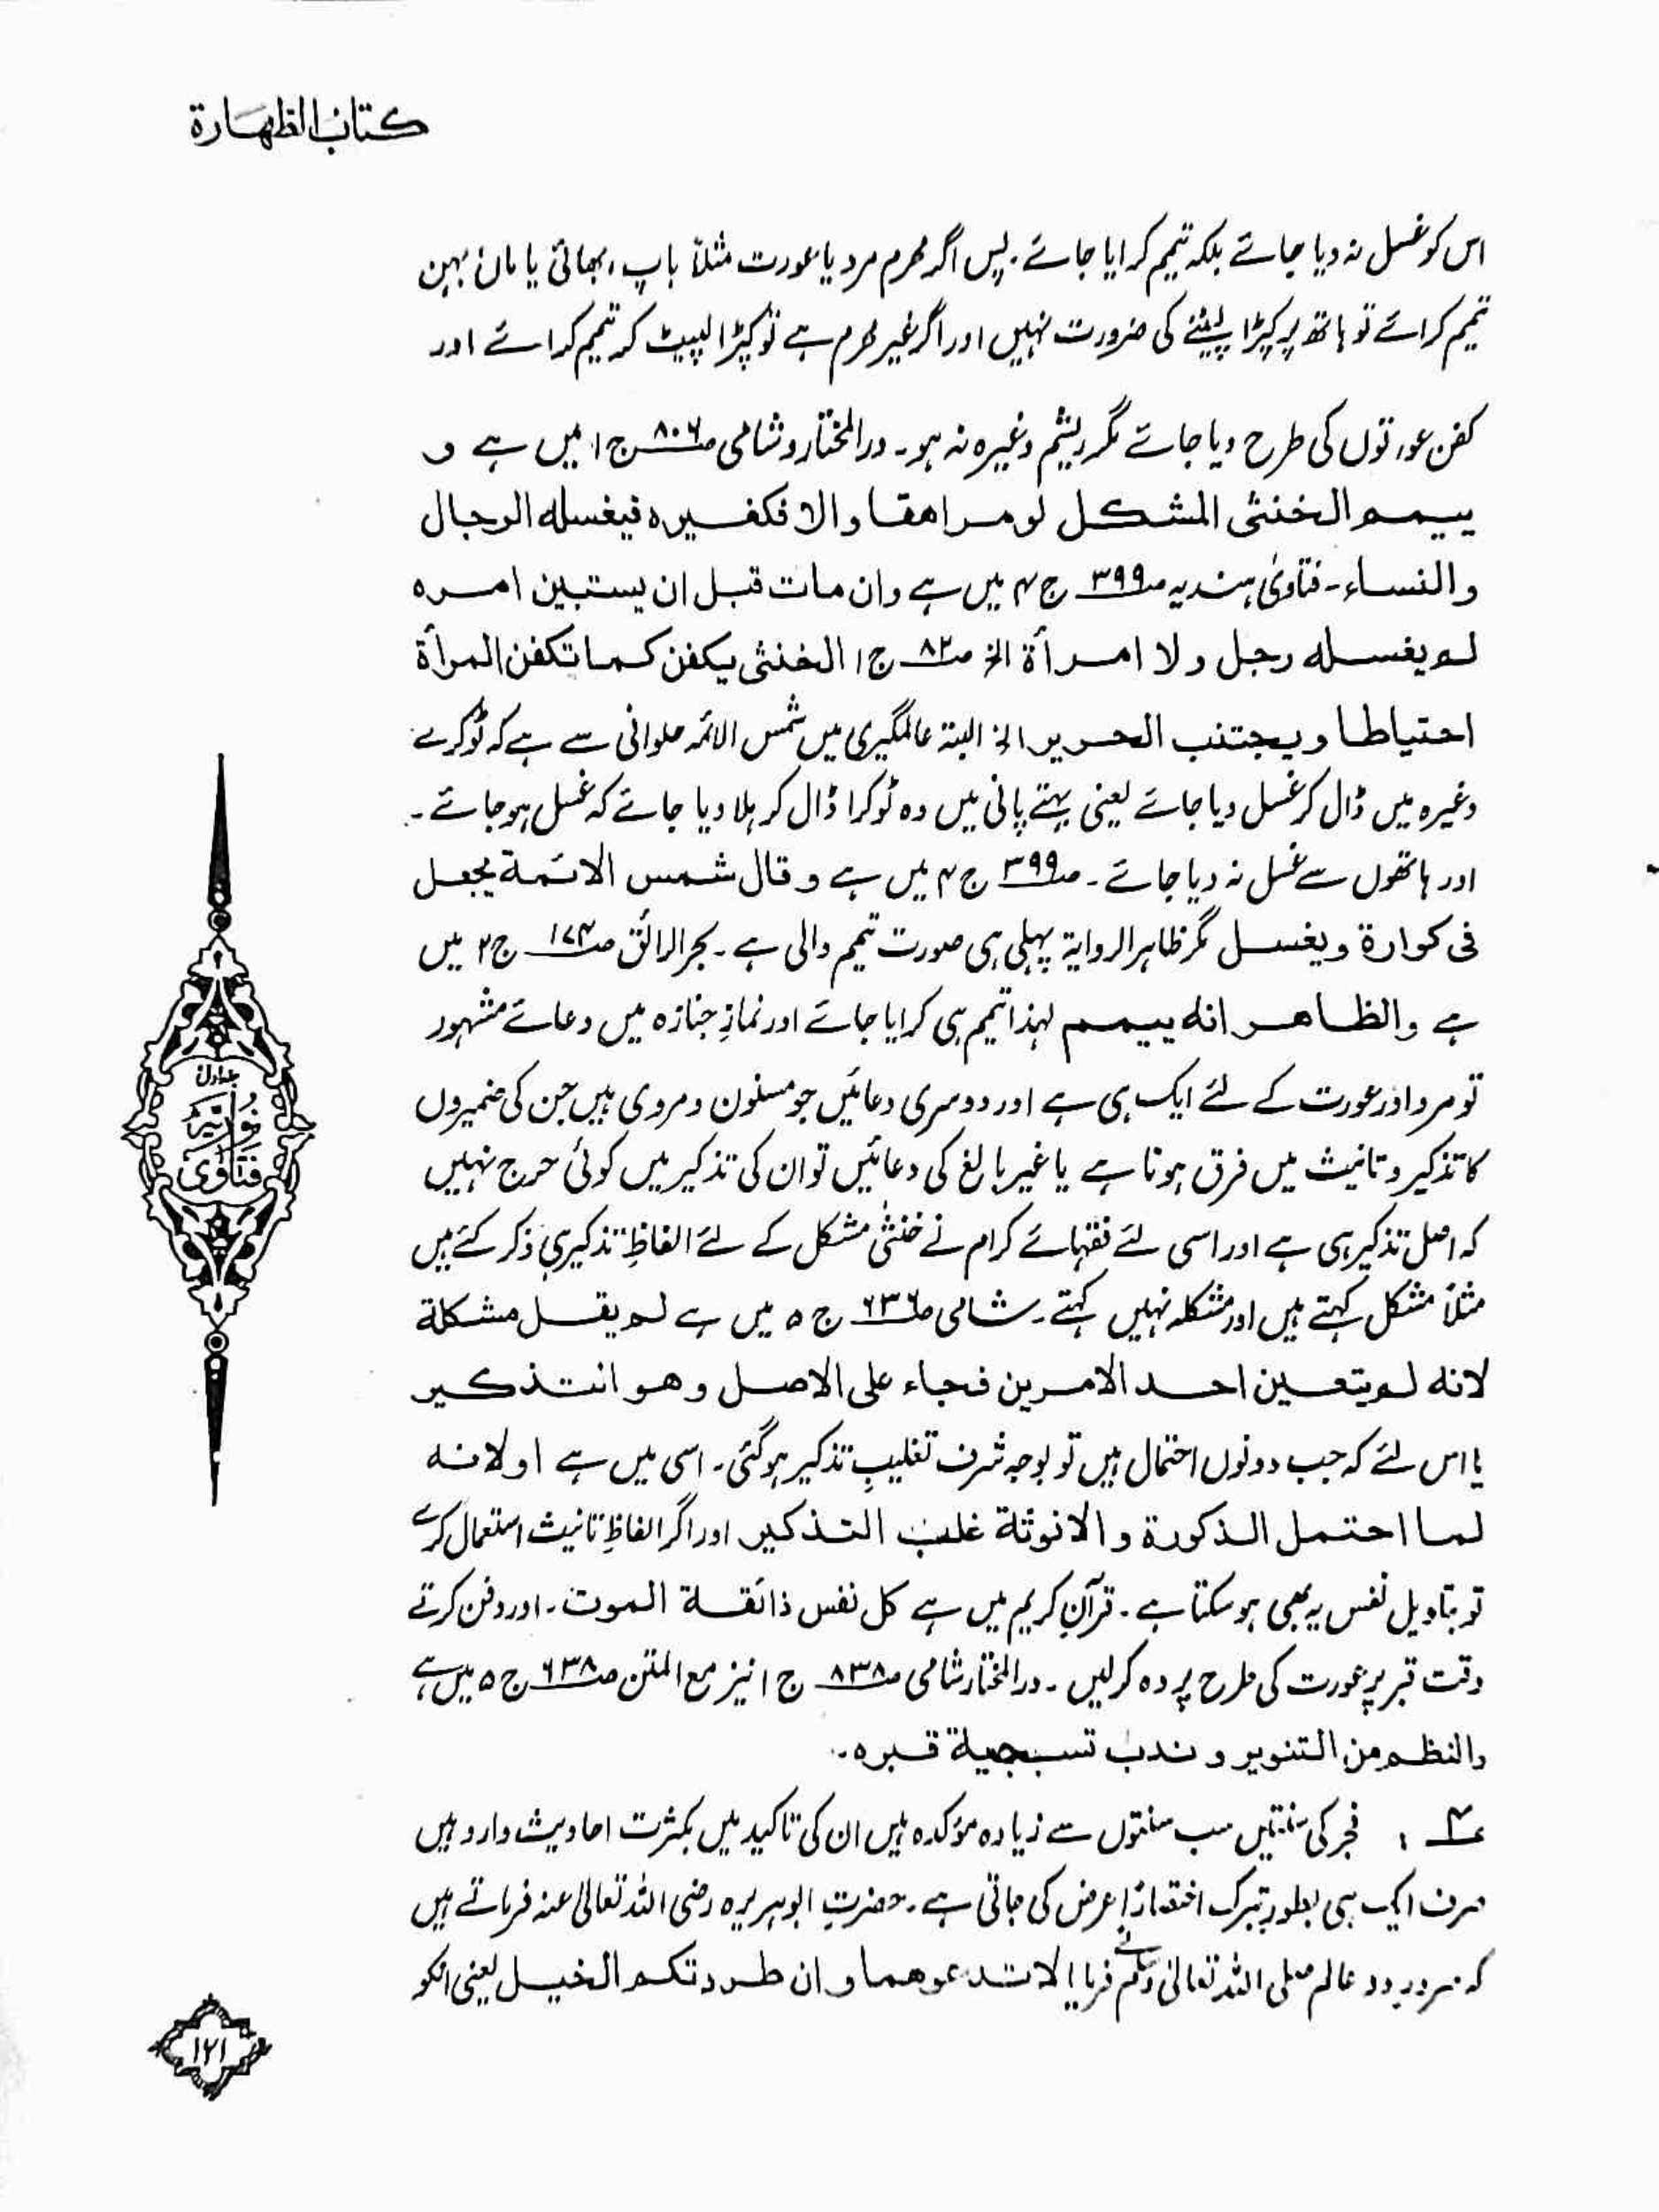 کتاب الطھارة
اس کو غسل نہ دیا جائے بلکہ تیمم کرایا جائے۔ پس اگر محرم مرد یا عورت مثلاً باپ، بھائی یا ماں بہن
تیمم کرائے تو ہاتھ پر کپڑا لپیٹنے کی ضرورت نہیں اور اگر غیر محرم ہے تو کپڑا لپیٹ کر تیمم کرائے اور
کفن عورتوں کی طرح دیا جائے مگر ریشم وغیرہ نہ ہو۔ درالمختار و شامی صـ۸۰۶ ج۱ میں ہے و
ییمم الخنثی المشکل لو مراھقا والا فکغیرہ فیغسلہ الرجال
والنساء۔ فتاویٰ ہندیہ صـ۳۹۹ ج۴ میں ہے وان مات قبل ان یستبین امرہ
لم یغسلہ رجل ولا امرأة الخ صـ۸۲ ج۱ الخنثی یکفن کما تکفن المرأة
احتیاطا ویجتنب الحریر الخ البتہ عالمگیری میں شمس الائمہ حلوانی سے ہے کہ ٹوکرے
وغیرہ میں ڈال کر غسل دیا جائے یعنی بہتے پانی میں وہ ٹوکرا ڈال کر ہلا دیا جائے کہ غسل ہو جائے۔
اور ہاتھوں سے غسل نہ دیا جائے۔ صـ۳۹۹ ج۴ میں ہے وقال شمس الائمة یجعل
فی کوارة ویغسل مگر ظاہر الروایۃ پہلی ہی صورت تیمم والی ہے۔ بحر الرائق صـ۱۷۴ ج۲ میں
ہے والظاھر انہ ییمم لہذا تیمم ہی کرایا جائے اور نمازِ جنازہ میں دعائے مشہور
تو مرد اور عورت کے لئے ایک ہی ہے اور دوسری دعائیں جو مسنون و مروی ہیں جن کی ضمیروں
کا تذکیر و تانیث میں فرق ہوتا ہے یا غیر بالغ کی دعائیں تو ان کی تذکیر میں کوئی حرج نہیں
کہ اصل تذکیر ہی ہے اور اسی لئے فقہائے کرام نے خنثیٰ مشکل کے لئے الفاظِ تذکیری ذکر کئے ہیں
مثلاً مشکل کہتے ہیں اور مشکلہ نہیں کہتے۔ شامی صـ۶۳۶ ج۵ میں ہے لم یقل مشکلة
لانہ لم یتعین احد الامرین فجاء علی الاصل وھو التذکیر
یا اس لئے کہ جب دونوں احتمال ہیں تو بوجہ شرف تغلیبِ تذکیر ہو گئی۔ اسی میں ہے او لانہ
لما احتمل الذکورة والانوثة غلب التذکیر اور اگر الفاظِ تانیث استعمال کرے
تو بتاویل نفس یہ بھی ہو سکتا ہے۔ قرآنِ کریم میں ہے کل نفس ذائقة الموت۔ اور دفن کرتے
وقت قبر پر عورت کی طرح پردہ کر لیں۔ درالمختار شامی صـ۸۳۸ ج۱ نیز مع المتن صـ۶۳۸ ج۵ میں ہے
والنظم من التنویر وندب تسجیة قبرہ۔
عـ۴ : فجر کی سنتیں سب سنتوں سے زیادہ مؤکدہ ہیں ان کی تاکید میں بکثرت احادیث وارد ہیں
صرف ایک ہی بطورِ تبرک اختصارًا عرض کی جاتی ہے۔ حضرتِ ابوہریرہ رضی اللہ تعالیٰ عنہ فرماتے ہیں
کہ سرورِ عالم صلی اللہ تعالیٰ وسلم نے فرمایا لا تدعوھما وان طردتکم الخیل یعنی انکو
جلد اول
فتاویٰ نوریہ
۱۲۱